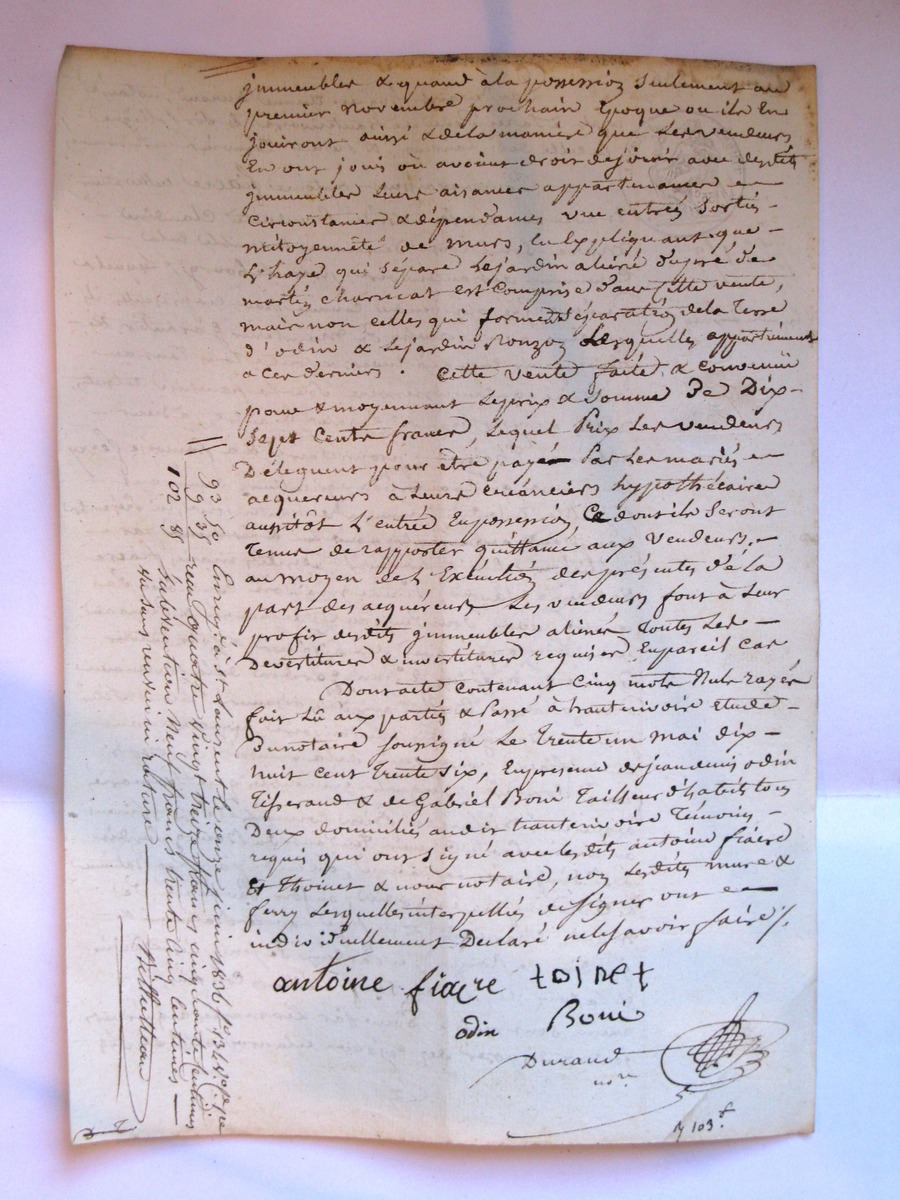 jmmeubles & quand à la possession seulement au
premier novembre prochain Epoque ou ils En
jouiront ainsi & de la maniere que Les vendeurs
En ont joui ou avoient droit de jouir avec desdits
jmmeubles leurs aisances appartenances en
Circonstances & dépendances vue entrées sorties
mitoyenneté de murs, En Expliquant que
L'haye qui sépare Le jardin aliéné d'apié de
martin charneat est comprise dans cette vente,
mais non celles qui forment séparation de la Terre
d'odin & Le jardin Ronzon Lesquelles appartiennent
a ces derniers. Cette vente faite & convenüe
pour & moyennant Le prix & somme De Dix-
sept Cents francs, Lequel Prix Les vendeurs
Déleguent pour être payé Par Les mariés
acquereurs à Leurs Créanciers hypothécaires
aussitôt L'entrée En possession, Ce dont ils seront
Tenus de rapporter quittance aux vendeurs.
au moyen de L'Exécution des présentes de la
part des acquéreurs Les vendeurs font à Leur
profit desdits jmmeubles aliénés Toutes Les
Devestitures & investitures requises En pareil cas
Dont acte contenant Cinq mots Nuls rayés
fait Lû aux parties & Passé à hauterivoire etude
Du notaire soussigné Le Trente un mai dix-
huit cent Trente six, En présence de jean denis odin
Tisserand & de Gabriel Boni Tailleur d'habits tous
Deux domiciliés audit hauterivoire Témoins
requis qui ont signé avec lesdits antoine fiacre
Et Thoinet & nous notaire, non Lesdites mure &
ferry Lesquelles interpellées de signer ont
individuellement Declaré ne le savoir faire /.
antoine fiacre toinet
odin Boni
Durand
nore
103 f
93 50
9 35
102 85
Enreg. à st Laurent le onze juin 1836 fo 134
reçu quatre vingt treize francs cinquante centimes
subvention neuf francs trente cinq centimes
sans renvoi ni rature